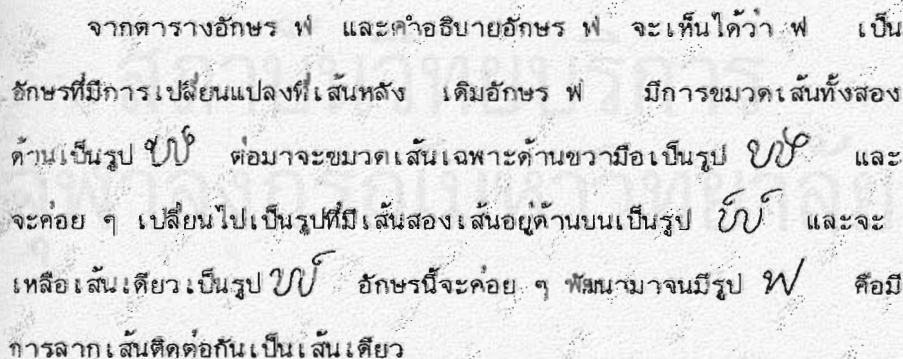 จากตารางอักษร ฟ และคำอธิบายอักษร ฟ จะเห็นได้ว่า ฟ เป็น
อักษรที่มีการเปลี่ยนแปลงที่เส้นหลัง เดิมอักษร ฟ มีการขมวดเส้นทั้งสอง
ด้านเป็นรูป ต่อมาจะขมวดเส้นเฉพาะด้านขวามือเป็นรูป และ
จะค่อย ๆ เปลี่ยนไปเป็นรูปที่มีเส้นสองเส้นอยู่ด้านบนเป็นรูป และจะ
เหลือเส้นเดียวเป็นรูป อักษรนี้จะค่อย ๆ พัฒนามาจนมีรูป ฟ คือมี
การลากเส้นติดต่อกันเป็นเส้นเดียว